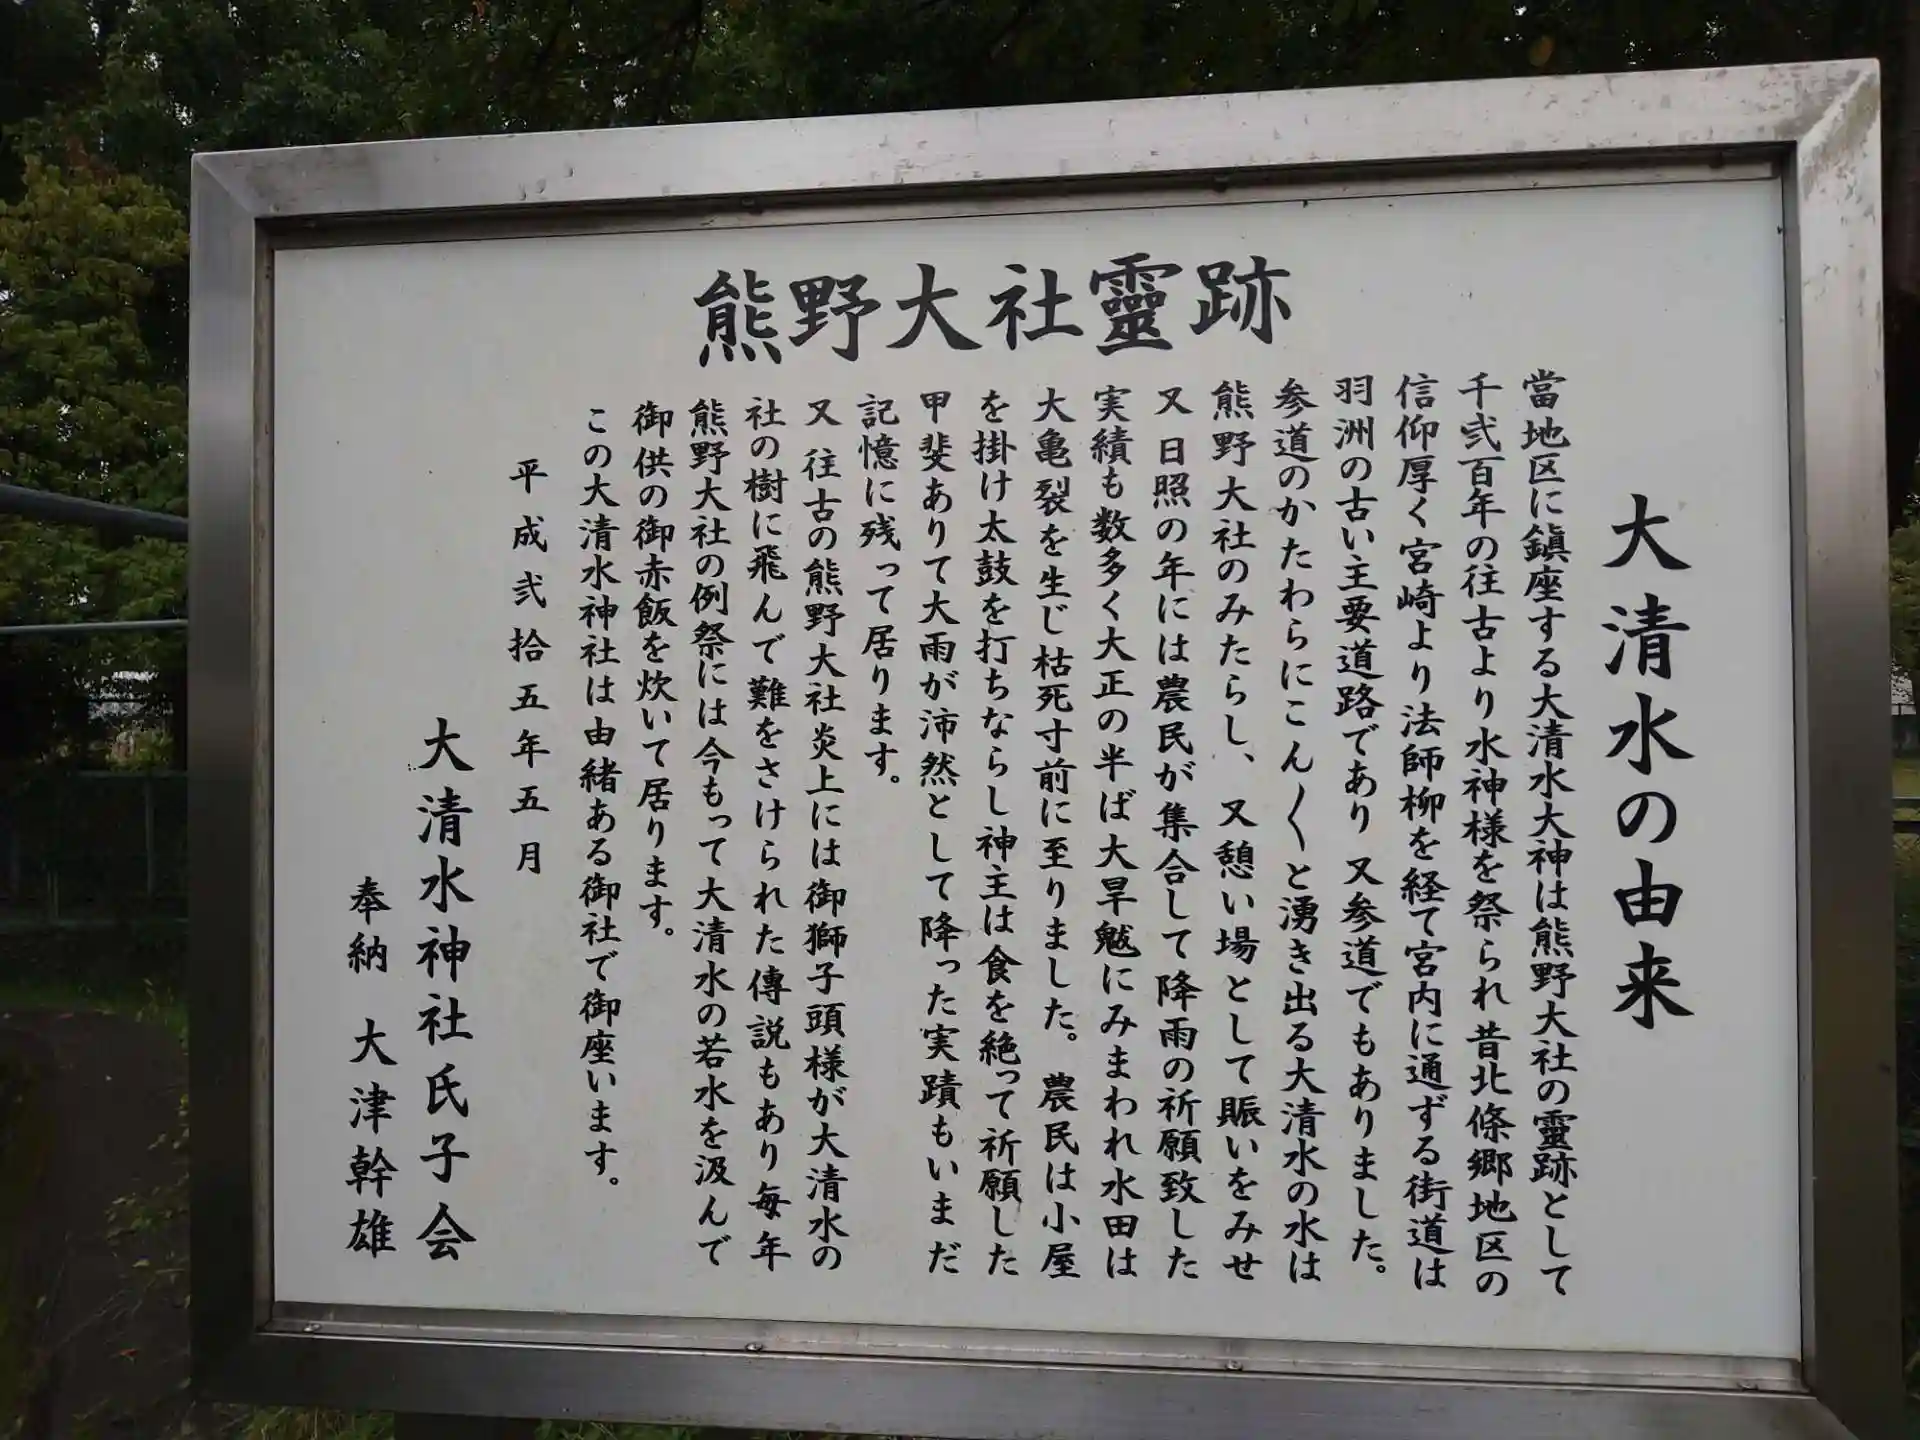 熊野大社靈跡
大清水の由来
當地区に鎮座する大清水大神は熊野大社の靈跡として
千弐百年の往古より水神様を祭られ昔北條郷地区の
信仰厚く宮崎より法師柳を経て宮内に通ずる街道は
羽洲の古い主要道路であり又参道でもありました。
参道のかたわらにこん〳〵と湧き出る大清水の水は
熊野大社のみたらし、又憩い場として賑いをみせ
又日照の年には農民が集合して降雨の祈願致した
実績も数多く大正の半ば大旱魃にみまわれ水田は
大亀裂を生じ枯死寸前に至りました。農民は小屋
を掛け太鼓を打ちならし神主は食を絶って祈願した
甲斐ありて大雨が沛然として降った実蹟もいまだ
記憶に残って居ります。
又往古の熊野大社炎上には御獅子頭様が大清水の
社の樹に飛んで難をさけられた傳説もあり毎年
熊野大社の例祭には今もって大清水の若水を汲んで
御供の御赤飯を炊いて居ります。
この大清水神社は由緒ある御社で御座います。
平成弐拾五年五月
大清水神社氏子会
奉納 大津幹雄